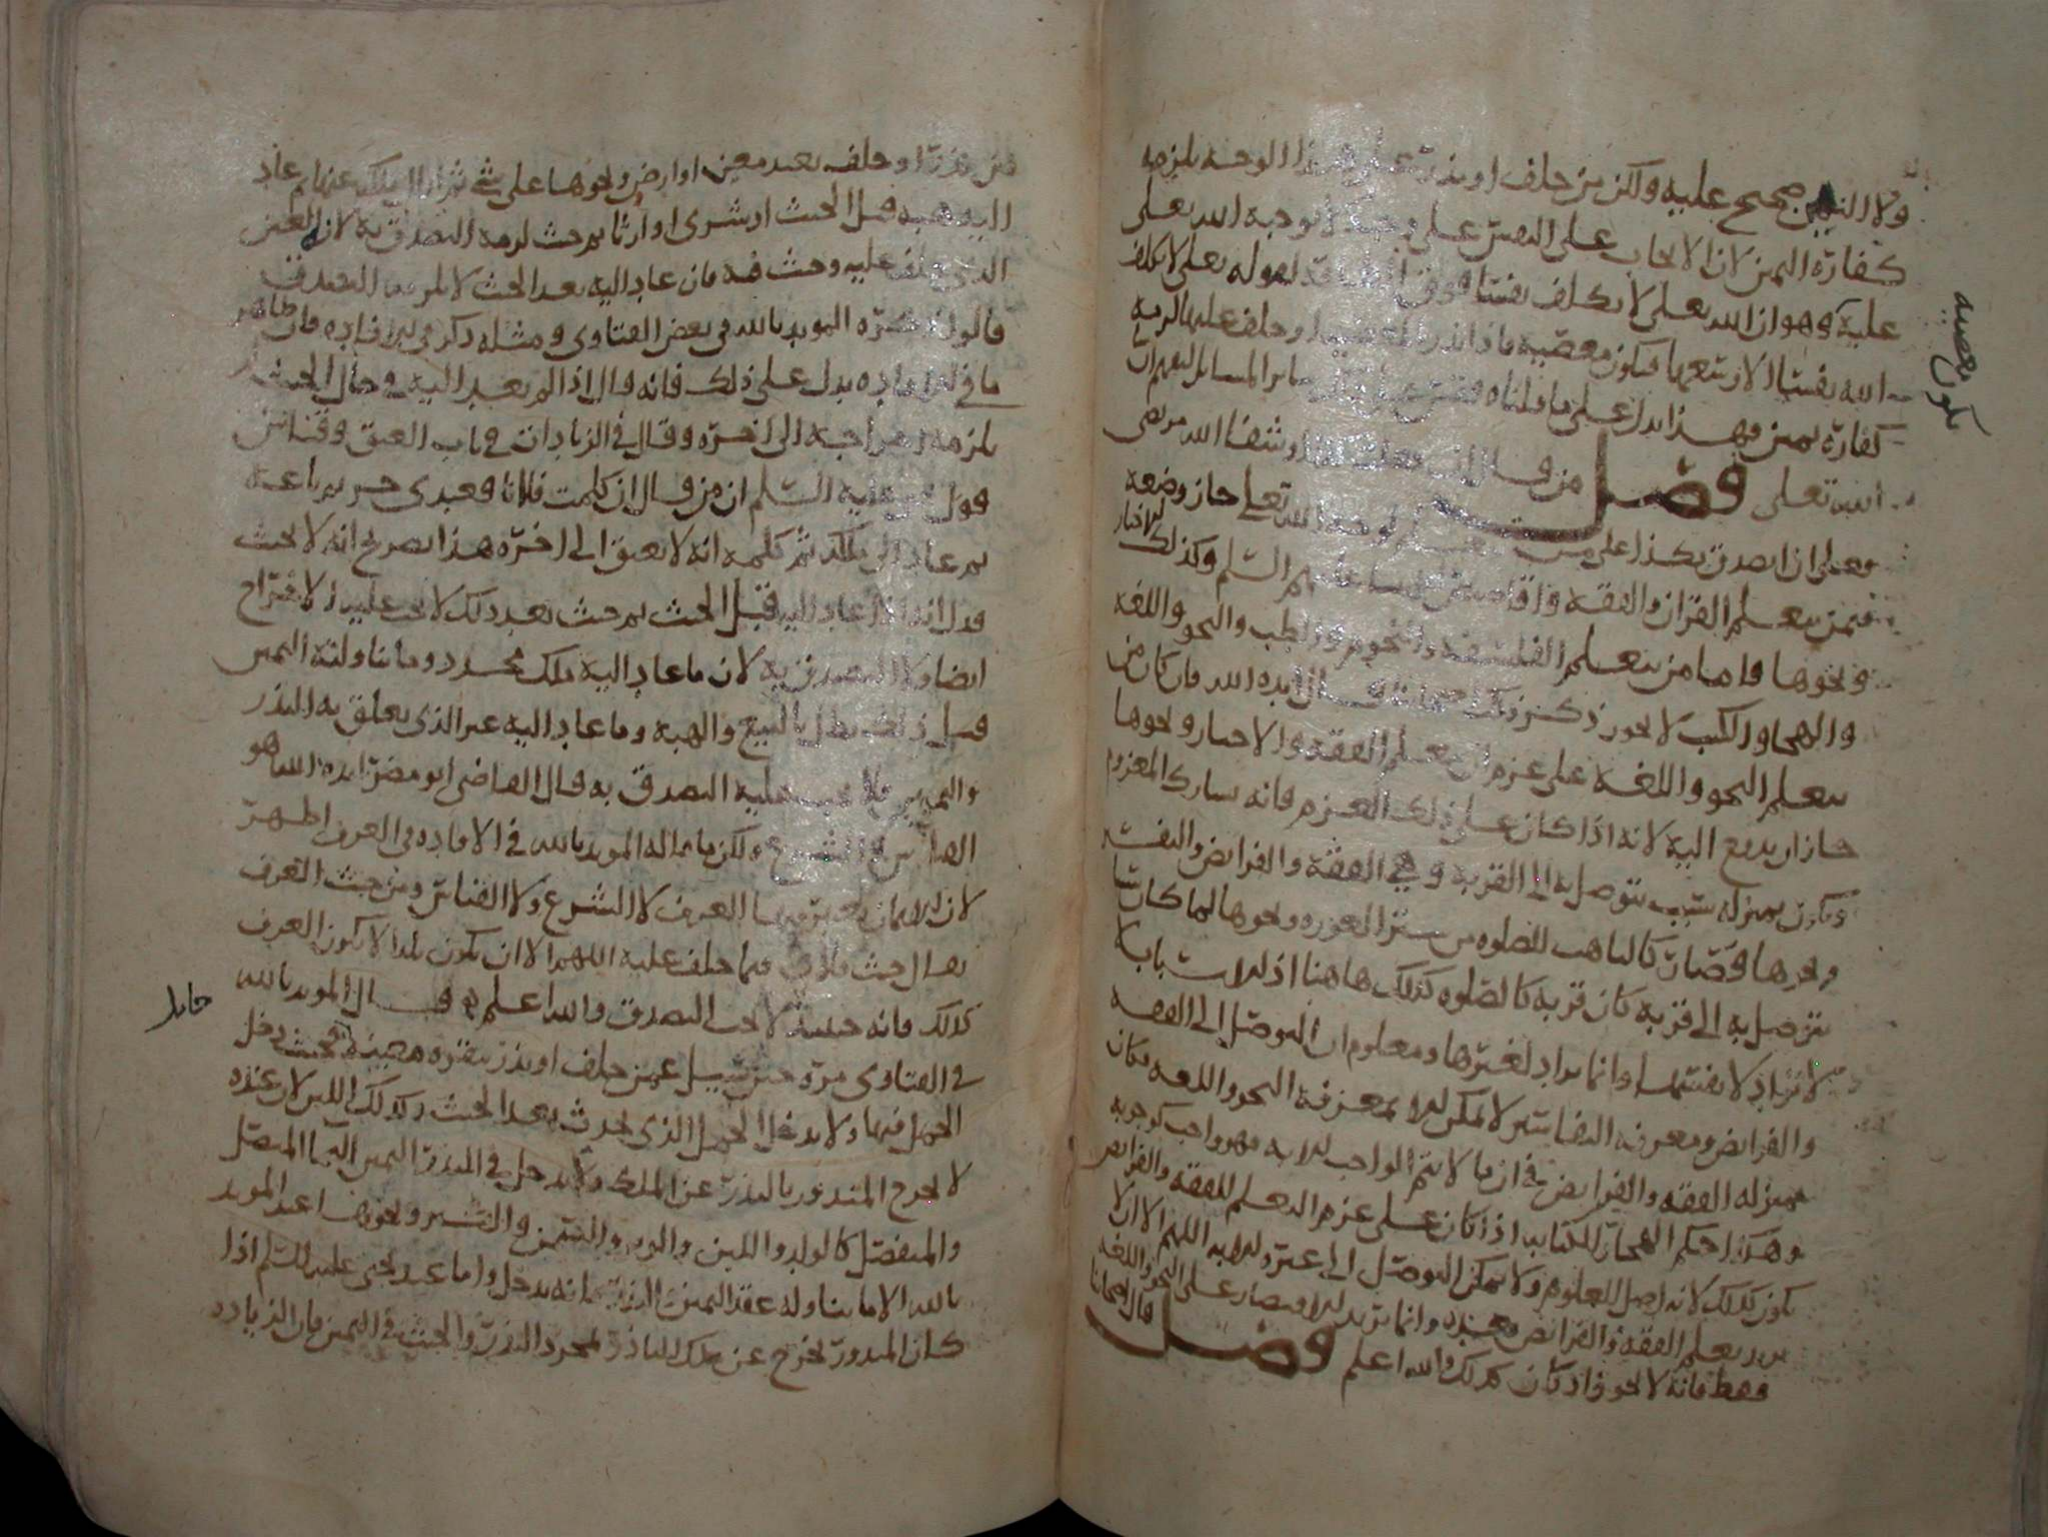 ولا اليمين صحيح عليه ولكن من حلف او نذر على هذا الوجه يلزمه
كفارة اليمين لان الايجاب على النفس على وجه لا يوجبه الله تعلى
عليه وهو ان الله تعلى لا يكلف نفسا فوق لقوله تعلى لا يكلف
الله نفسا الا وسعها فيكون معصية فاذا نذر او حلف عليها لزمه
تكون معصية
كفارة يمين وهذا يدل على ما قلناه سائر المسائل
الله تعلى فصل من قال ان شفا الله مريضى
فعلى ان اتصدق بكذا على من لوجه الله تعلى جاز وضعه
فيمن يتعلم القران والفقه عليهم السلم وكذلك الاخبار
ونحوها واما من يتعلم الفلسفة والنجوم والطب والنحو واللغه
والهجا والكتب لا يجوز ذكر ذلك قال ايده الله فان كان من
يتعلم النحو واللغه على عزم ان يعلم الفقه والاخبار ونحوها
جاز ان يدفع اليه لانه اذا كان على ذلك العزم فانه يشارك المعزوم
ويكون بمنزلة سبب يتوصل به الى القربة وهي الفقه والفرايض والتفسير
ونحوها فصار كالتاهب للصلوه من ستر العوره ونحوها لما كان سببا
يتوصل به الى قربة كان قربة كالصلوه كذلك هاهنا اذ الاسباب
لا تراد لانفسها وانما يراد لغيرها ومعلوم ان التوصل الى الفقه
والفرايض ومعرفة التفاسير لا يمكن الا بمعرفة النحو واللغه فكان
بمنزلة الفقه والفرايض في ان ما لا يتم الواجب الا به فهو واجب كوجوبه
وهكذا حكم الهجا والكتاب اذا كان على عزم التعلم للفقه والفرايض
يكون كذلك لانه اصل للعلوم ولا يمكن التوصل الى غيره الا به اللهم الا ان لا
يريد تعلم الفقه والفرايض وانما يريد الاقتصار على النحو واللغه
فقط فانه لا يجوز اذا كان كذلك والله اعلم فصل قال اصحابنا
من نذر او حلف بعبد معين او ارض ونحوها على شى ثم ازال الملك عنها ثم عاد
اليه هبه قبل الحنث او شرى او ارثا ثم حنث لزمه التصدق به لان العين
الذى حلف عليه وحنث فيه فان عاد اليه بعد الحنث لا يلزمه التصدق
قالوا ذكره المويد بالله في بعض الفتاوى ومثله ذكر في الافاده فان ظاهر
ما في الافاده يدل على ذلك فانه قال اذا لم يعد اليه في حال الحنث
يلزمه اخراجه الى اخره وقال في الزيادات في باب العتق وقياس
قول يحيى عليه السلم ان من قال ان كلمت فلانا فعبدى حر ثم باعه
ثم عاد الى ملكه ثم كلمه انه لا يعتق الى اخره هذا تصريح انه لا يحنث
فدل انه اذا عاد اليه قبل الحنث ثم حنث بعد ذلك لا يجب عليه الاخراج
ايضا ولا التصدق به لان ما عاد اليه ملك مجدد وما تناولته اليمين
قبل ذلك بطل بالبيع والهبه وما عاد اليه غير الذى تعلق به النذر
واليمين فلا يجب عليه التصدق به قال القاضى ابو مضر ايده الله هو
القياس في الشرع ولكن ما قاله المويد بالله في الافاده في العرف اظهر
لان الايمان يعتبر فيها العرف لا الشرع ولا القياس ومن حيث العرف
يقال حنث فلان فيما حلف عليه اللهم الا ان يكون بلدا لا يكون العرف
كذلك فانه حينئذ لا يجب التصدق والله اعلم قال المويد بالله
في الفتاوى مره حين سيل عمن حلف او نذر ببقره معينة فحنث دخل
حامل
الحمل فيها ولا يدخل الحمل الذى يحدث بعد الحنث وكذلك اللبن لان عنده
لا يخرج المنذور بالنذر عن الملك ولا يدخل في النذر واليمين النما المتصل
والمنفصل كالولد واللبن والوبر والسمن والشعر ونحوها عند المويد
بالله الا ما يتناوله عقد اليمين والنذر فانه يدخل واما عند يحيى عليه السلم اذا
كان المنذور يخرج عن ملك الناذر لمجرد النذر والحنث في اليمين فان الزياده